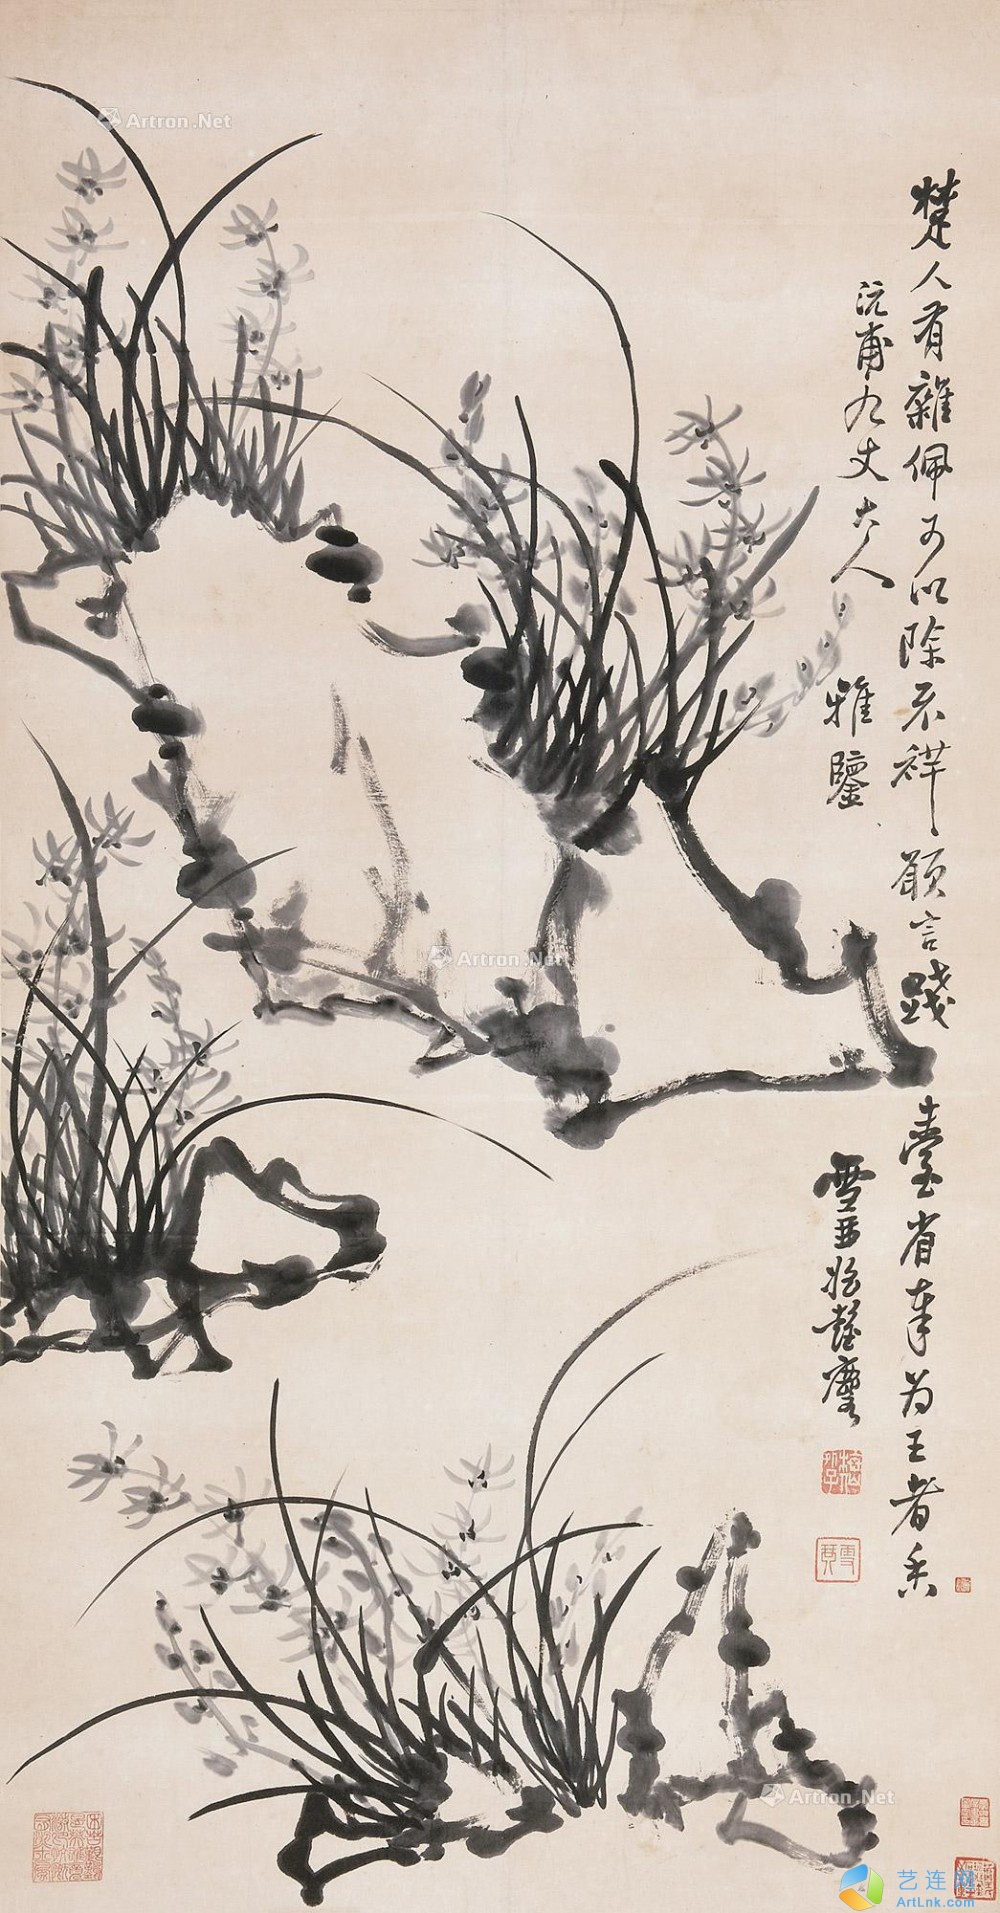 楚人有雜佩可以除不祥願言踐臺省奉為王者香
沅甫九丈大人雅鑒
雪
Artron.Net
Artron.Net
Artron.Net
艺连网
ArtLnk.com